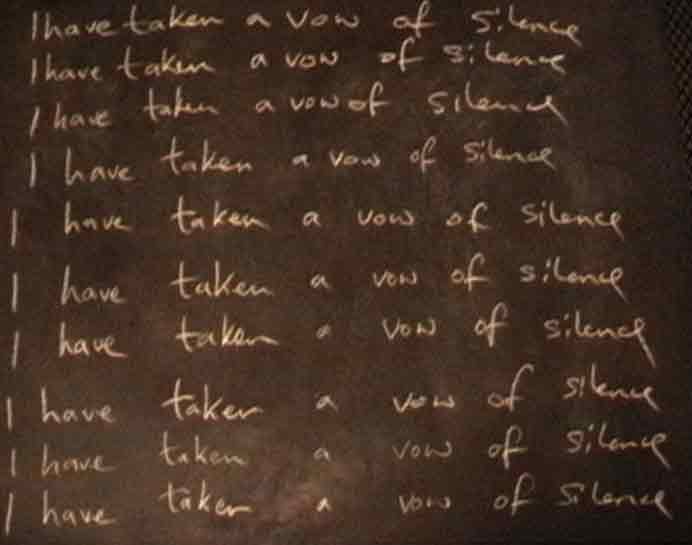 I have taken a vow of silence
I have taken a vow of silence
I have taken a vow of silence
I have taken a vow of silence
I have taken a vow of silence
I have taken a vow of silence
I have taken a vow of silence
I have taken a vow of silence
I have taken a vow of silence
I have taken a vow of silence